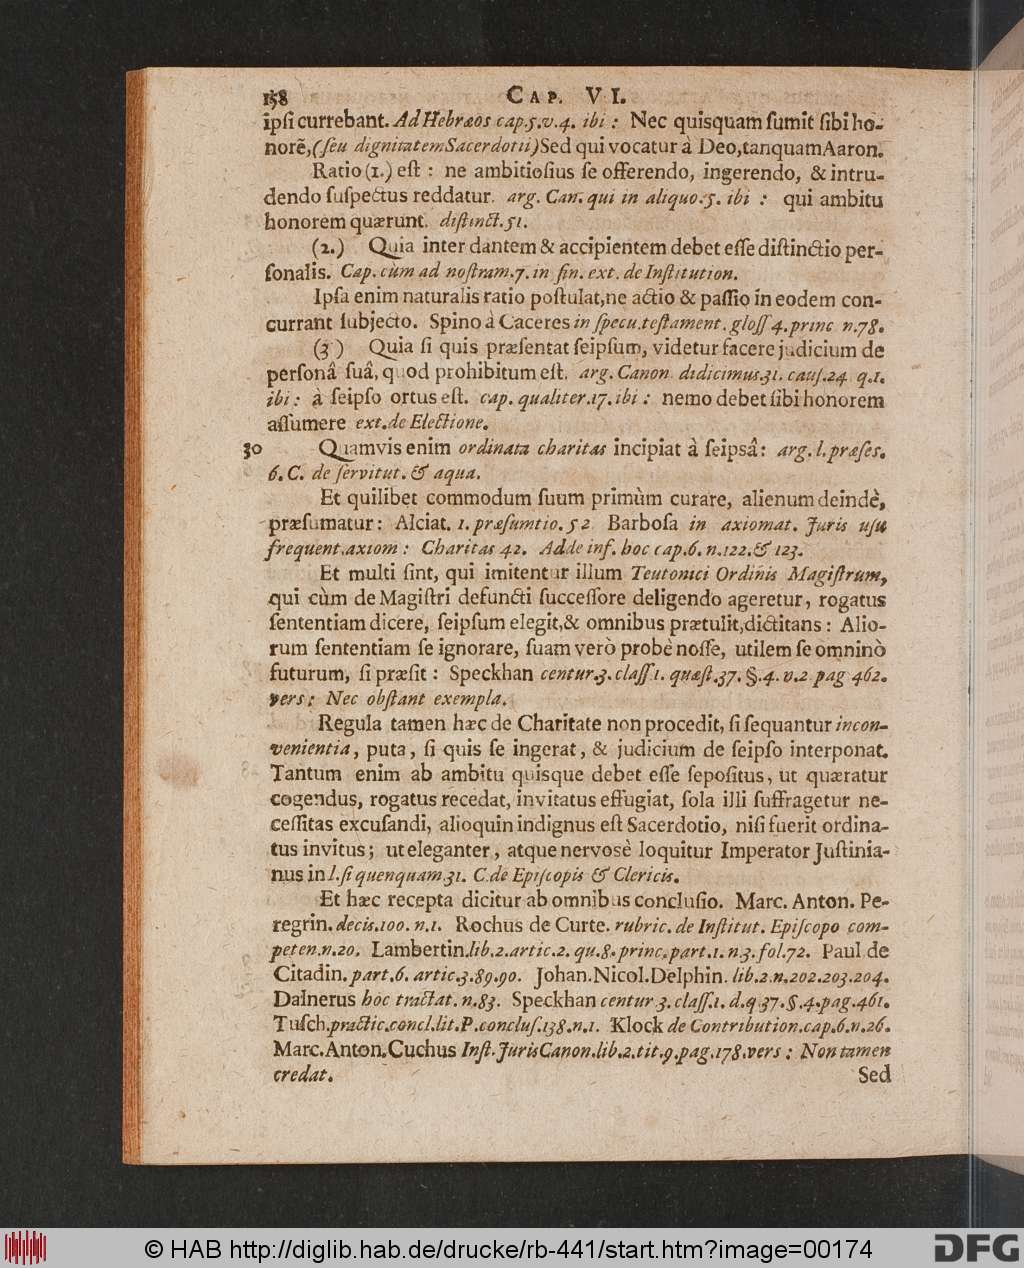 158 CAP. VI.
ipſi currebant. Ad Hebræos cap.5.v.4. ibi : Nec quisquam ſumit ſibi ho-
norẽ,(ſeu dignitatem Sacerdotii)Sed qui vocatur à Deo,tanquam Aaron.
Ratio (1.) eſt : ne ambitioſius ſe offerendo, ingerendo, & intru-
dendo ſuſpectus reddatur. arg. Can. qui in aliquo.5. ibi : qui ambitu
honorem quærunt. diſtinct.51.
(2.) Quia inter dantem & accipientem debet eſſe diſtinctio per-
ſonalis. Cap. cùm ad noſtram.7. in fin. ext. de Inſtitution.
Ipſa enim naturalis ratio poſtulat,ne actio & paſſio in eodem con-
currant ſubjecto. Spino à Caceres in ſpecu.teſtament. gloſſ 4.princ. n.78.
(3) Quia ſi quis præſentat ſeipſum, videtur facere judicium de
perſonâ ſuâ, quod prohibitum eſt. arg. Canon didicimus.31. cauſ.24. q.1.
ibi : à ſeipſo ortus eſt. cap. qualiter.17. ibi : nemo debet ſibi honorem
aſſumere ext.de Electione.
30 Quamvis enim ordinata charitas incipiat à ſeipsâ: arg. l. præſes.
6. C. de ſervitut. & aqua.
Et quilibet commodum ſuum primùm curare, alienum deindè,
præſumatur: Alciat. 1. præſumtio. 52. Barboſa in axiomat. Juris uſu
frequent.axiom : Charitas 42. Adde inf. hoc cap.6. n.122.& 123.
Et multi ſint, qui imitentur illum Teutonici Ordinis Magiſtrum,
qui cùm de Magiſtri defuncti ſucceſſore deligendo ageretur, rogatus
ſententiam dicere, ſeipſum elegit,& omnibus prætulit,dictitans : Alio-
rum ſententiam ſe ignorare, ſuam verò probè noſſe, utilem ſe omninò
futurum, ſi præſit : Speckhan centur.3. claſſ.1. quæſt.37. §.4. v.2 pag 462.
vers : Nec obſtant exempla.
Regula tamen hæc de Charitate non procedit, ſi ſequantur incon-
venientia, puta, ſi quis ſe ingerat, & judicium de ſeipſo interponat.
Tantum enim ab ambitu quisque debet eſſe ſepoſitus, ut quæratur
cogendus, rogatus recedat, invitatus effugiat, ſola illi ſuffragetur ne-
ceſſitas excuſandi, alioquin indignus eſt Sacerdotio, niſi fuerit ordina-
tus invitus; ut eleganter, atque nervosè loquitur Imperator Juſtinia-
nus in l. ſi quenquam.31. C.de Epiſcopis & Clericis.
Et hæc recepta dicitur ab omnibus concluſio. Marc. Anton. Pe-
regrin. decis.100. n.1. Rochus de Curte. rubric. de Inſtitut. Epiſcopo com-
peten.n.20. Lambertin.lib.2.artic.2. qu.8.princ.part.1. n.3.fol.72. Paul de
Citadin. part.6. artic.3.89.90. Johan.Nicol.Delphin. lib.2.n.202.203.204.
Dalnerus hoc tractat. n.83. Speckhan centur.3. claſſ.1. d.q.37.§.4.pag.461.
Tuſch.practic.concl.lit.P.concluſ.138.n.1. Klock de Contribution.cap.6.n.26.
Marc.Anton.Cuchus Inſt.Juris Canon.lib.2.tit.9.pag.178.vers : Non tamen
credat. Sed
© HAB http://diglib.hab.de/drucke/rb-441/start.htm?image=00174 DFG